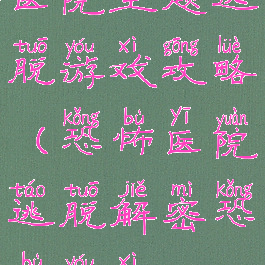 医院 逃
tuō yóu xì gōng lüè
脱游戏攻略
kǒng bù yī yuàn
（恐怖医院
táo tuō jiě mì kǒng
逃脱解密恐
bù yóu xì